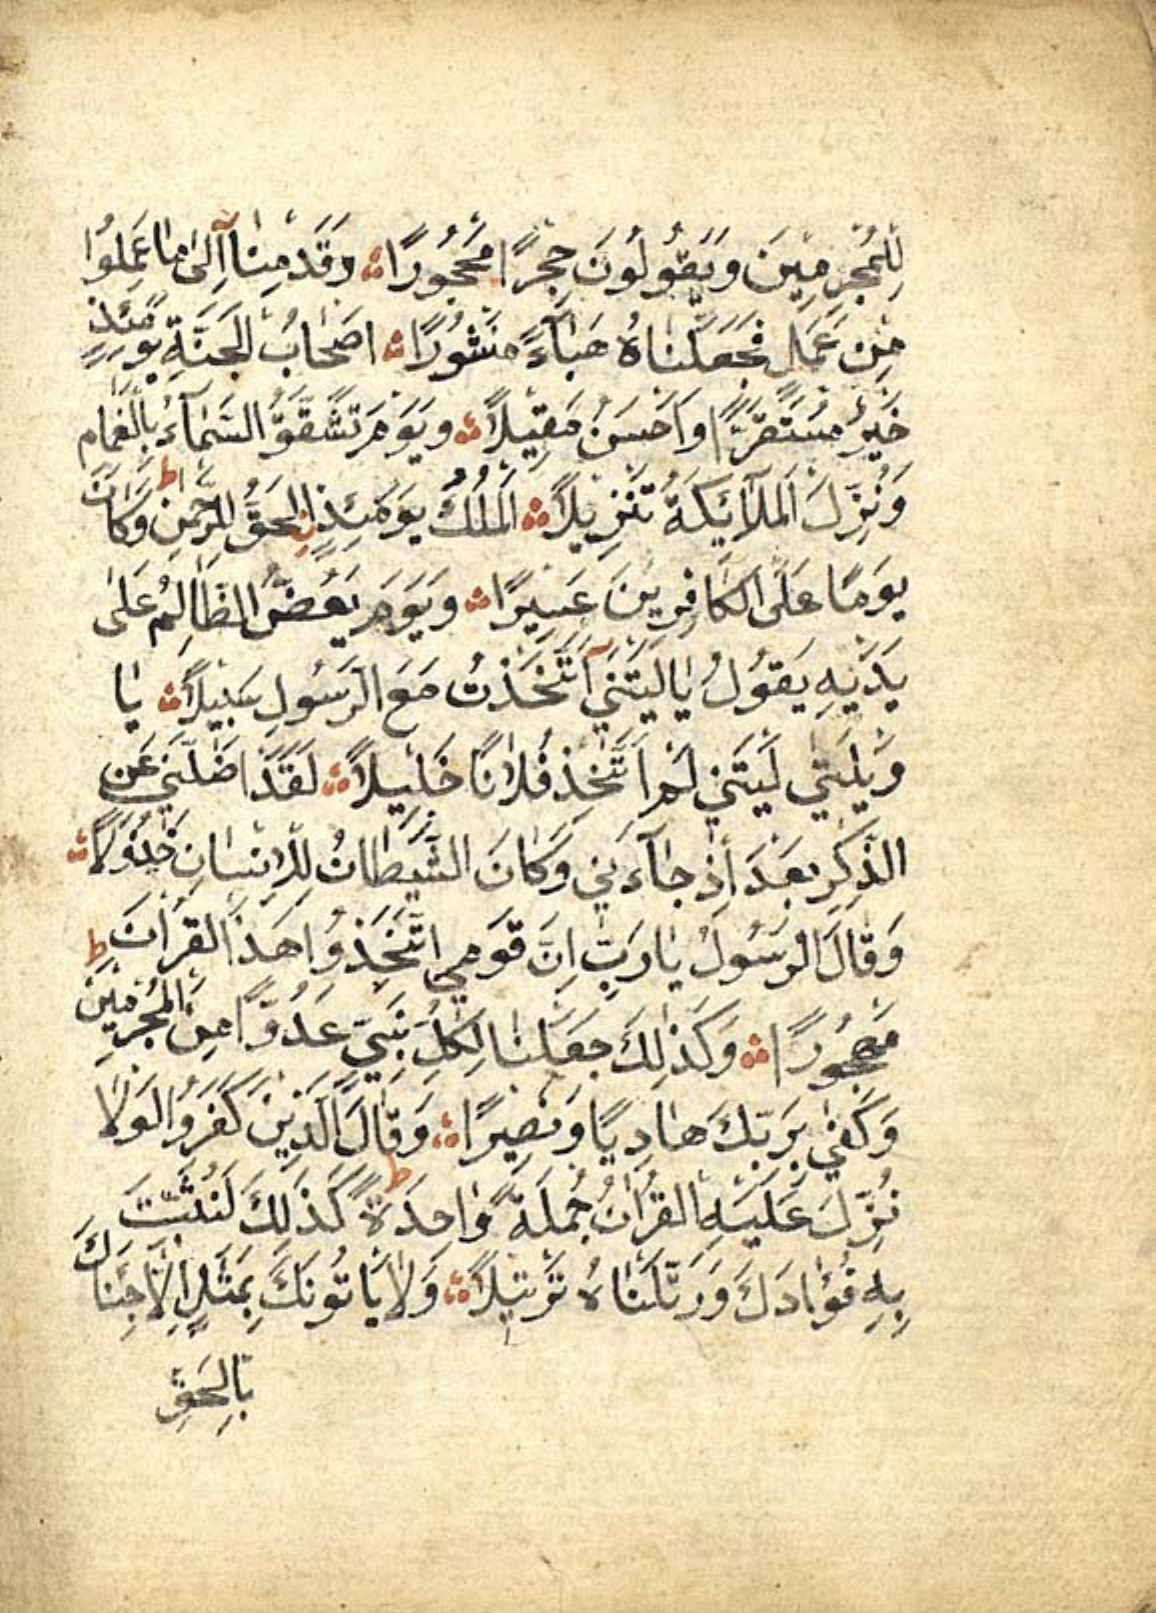 لِلْمُجْرِمِينَ وَيَقُولُونَ حِجْرًا مَحْجُورًا وَقَدِمْنَا اِلٰى مَا عَمِلُوا
مِنْ عَمَلٍ فَجَعَلْنَاهُ هَبَآءً مَنْثُورًا اَصْحَابُ الْجَنَّةِ يَوْمَئِذٍ
خَيْرٌ مُسْتَقَرًّا وَاَحْسَنُ مَقِيلًا وَيَوْمَ تَشَقَّقُ السَّمَآءُ بِالْغَمَامِ
وَنُزِّلَ الْمَلَآئِكَةُ تَنْزِيلًا اَلْمُلْكُ يَوْمَئِذٍ الْحَقُّ لِلرَّحْمٰنِ ط وَكَانَ
يَوْمًا عَلَى الْكَافِرِينَ عَسِيرًا وَيَوْمَ يَعَضُّ الظَّالِمُ عَلٰى
يَدَيْهِ يَقُولُ يَا لَيْتَنِي اتَّخَذْتُ مَعَ الرَّسُولِ سَبِيلًا يَا
وَيْلَتٰى لَيْتَنِي لَمْ اَتَّخِذْ فُلَانًا خَلِيلًا لَقَدْ اَضَلَّنِي عَنِ
الذِّكْرِ بَعْدَ اِذْ جَآءَنِي وَكَانَ الشَّيْطَانُ لِلْاِنْسَانِ خَذُولًا
وَقَالَ الرَّسُولُ يَا رَبِّ اِنَّ قَوْمِي اتَّخَذُوا هٰذَا الْقُرْاٰنَ ط
مَهْجُورًا وَكَذٰلِكَ جَعَلْنَا لِكُلِّ نَبِيٍّ عَدُوًّا مِنَ الْمُجْرِمِينَ
وَكَفٰى بِرَبِّكَ هَادِيًا وَنَصِيرًا وَقَالَ الَّذِينَ كَفَرُوا لَوْلَا
نُزِّلَ عَلَيْهِ الْقُرْاٰنُ جُمْلَةً وَاحِدَةً ط كَذٰلِكَ لِنُثَبِّتَ
بِهِ فُؤَادَكَ وَرَتَّلْنَاهُ تَرْتِيلًا وَلَا يَاْتُونَكَ بِمَثَلٍ اِلَّا جِئْنَاكَ
بِالْحَقِّ